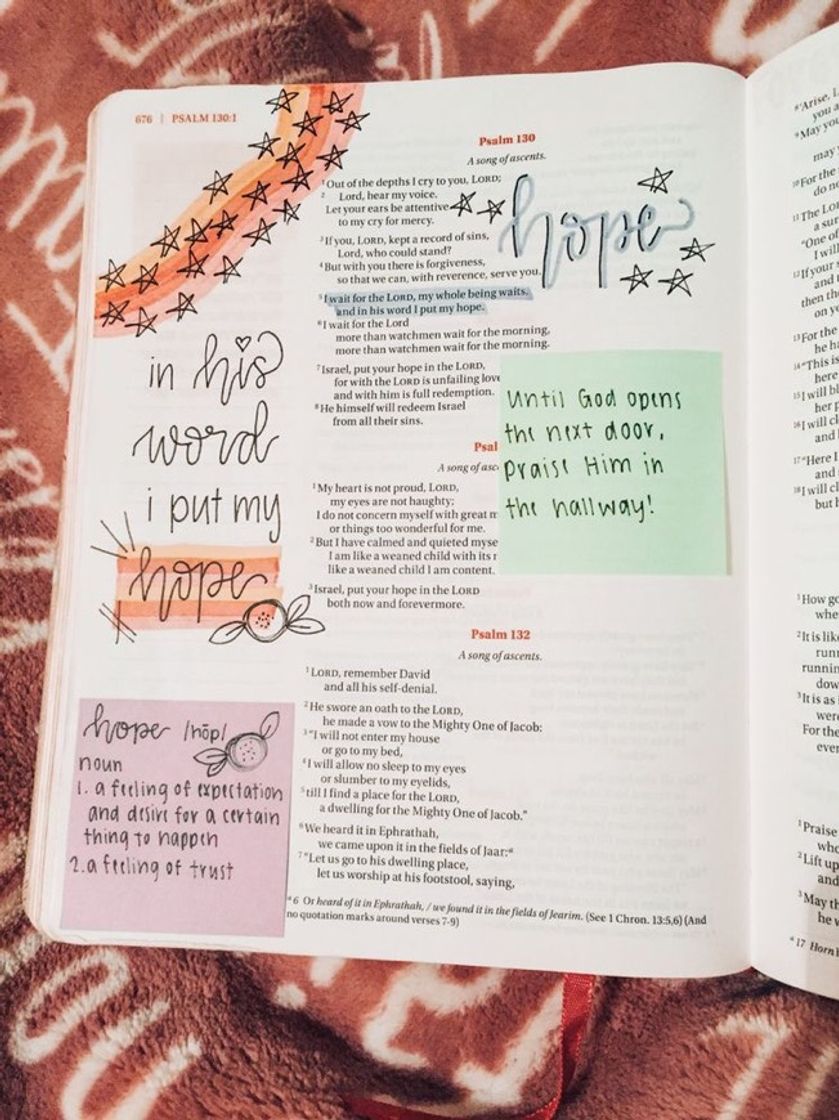 676 | PSALM 130:1
Psalm 130
A song of ascents.
¹Out of the depths I cry to you, LORD;
² Lord, hear my voice.
Let your ears be attentive
to my cry for mercy.
³If you, LORD, kept a record of sins,
Lord, who could stand?
⁴But with you there is forgiveness,
so that we can, with reverence, serve you.
⁵I wait for the LORD, my whole being waits,
and in his word I put my hope.
⁶I wait for the Lord
more than watchmen wait for the morning,
more than watchmen wait for the morning.
⁷Israel, put your hope in the LORD,
for with the LORD is unfailing love
and with him is full redemption.
⁸He himself will redeem Israel
from all their sins.
hope
in his
word
i put my
hope
Until God opens
the next door,
praise Him in
the hallway!
Psal
A song of asc
¹My heart is not proud, LORD,
my eyes are not haughty;
I do not concern myself with great m
or things too wonderful for me.
²But I have calmed and quieted myse
I am like a weaned child with its
like a weaned child I am content.
³Israel, put your hope in the LORD
both now and forevermore.
Psalm 132
A song of ascents.
¹LORD, remember David
and all his self-denial.
²He swore an oath to the LORD,
he made a vow to the Mighty One of Jacob:
³"I will not enter my house
or go to my bed,
⁴I will allow no sleep to my eyes
or slumber to my eyelids,
⁵till I find a place for the LORD,
a dwelling for the Mighty One of Jacob."
⁶We heard it in Ephrathah,
we came upon it in the fields of Jaar:ᵃ
⁷"Let us go to his dwelling place,
let us worship at his footstool, saying,
ᵃ 6 Or heard of it in Ephrathah, / we found it in the fields of Jearim. (See 1 Chron. 13:5,6) (And
no quotation marks around verses 7-9)
hope /hōp/
noun
1. a feeling of expectation
and desire for a certain
thing to happen
2. a feeling of trust
⁸"Arise, L
you a
⁹May you
may
¹⁰For the
do no
¹¹The Lo
a sur
"One of
I will
¹²If your
and
then the
on yo
¹³For the
he ha
¹⁴"This is
here
¹⁵I will bl
her p
¹⁶I will cl
and
¹⁷"Here I
and
¹⁸I will cl
but h
¹How go
whe
²It is lik
runn
runnin
dow
³It is as
were
For the
ever
¹Praise
who
²Lift up
and
³May th
he w
ᵃ 17 Horn